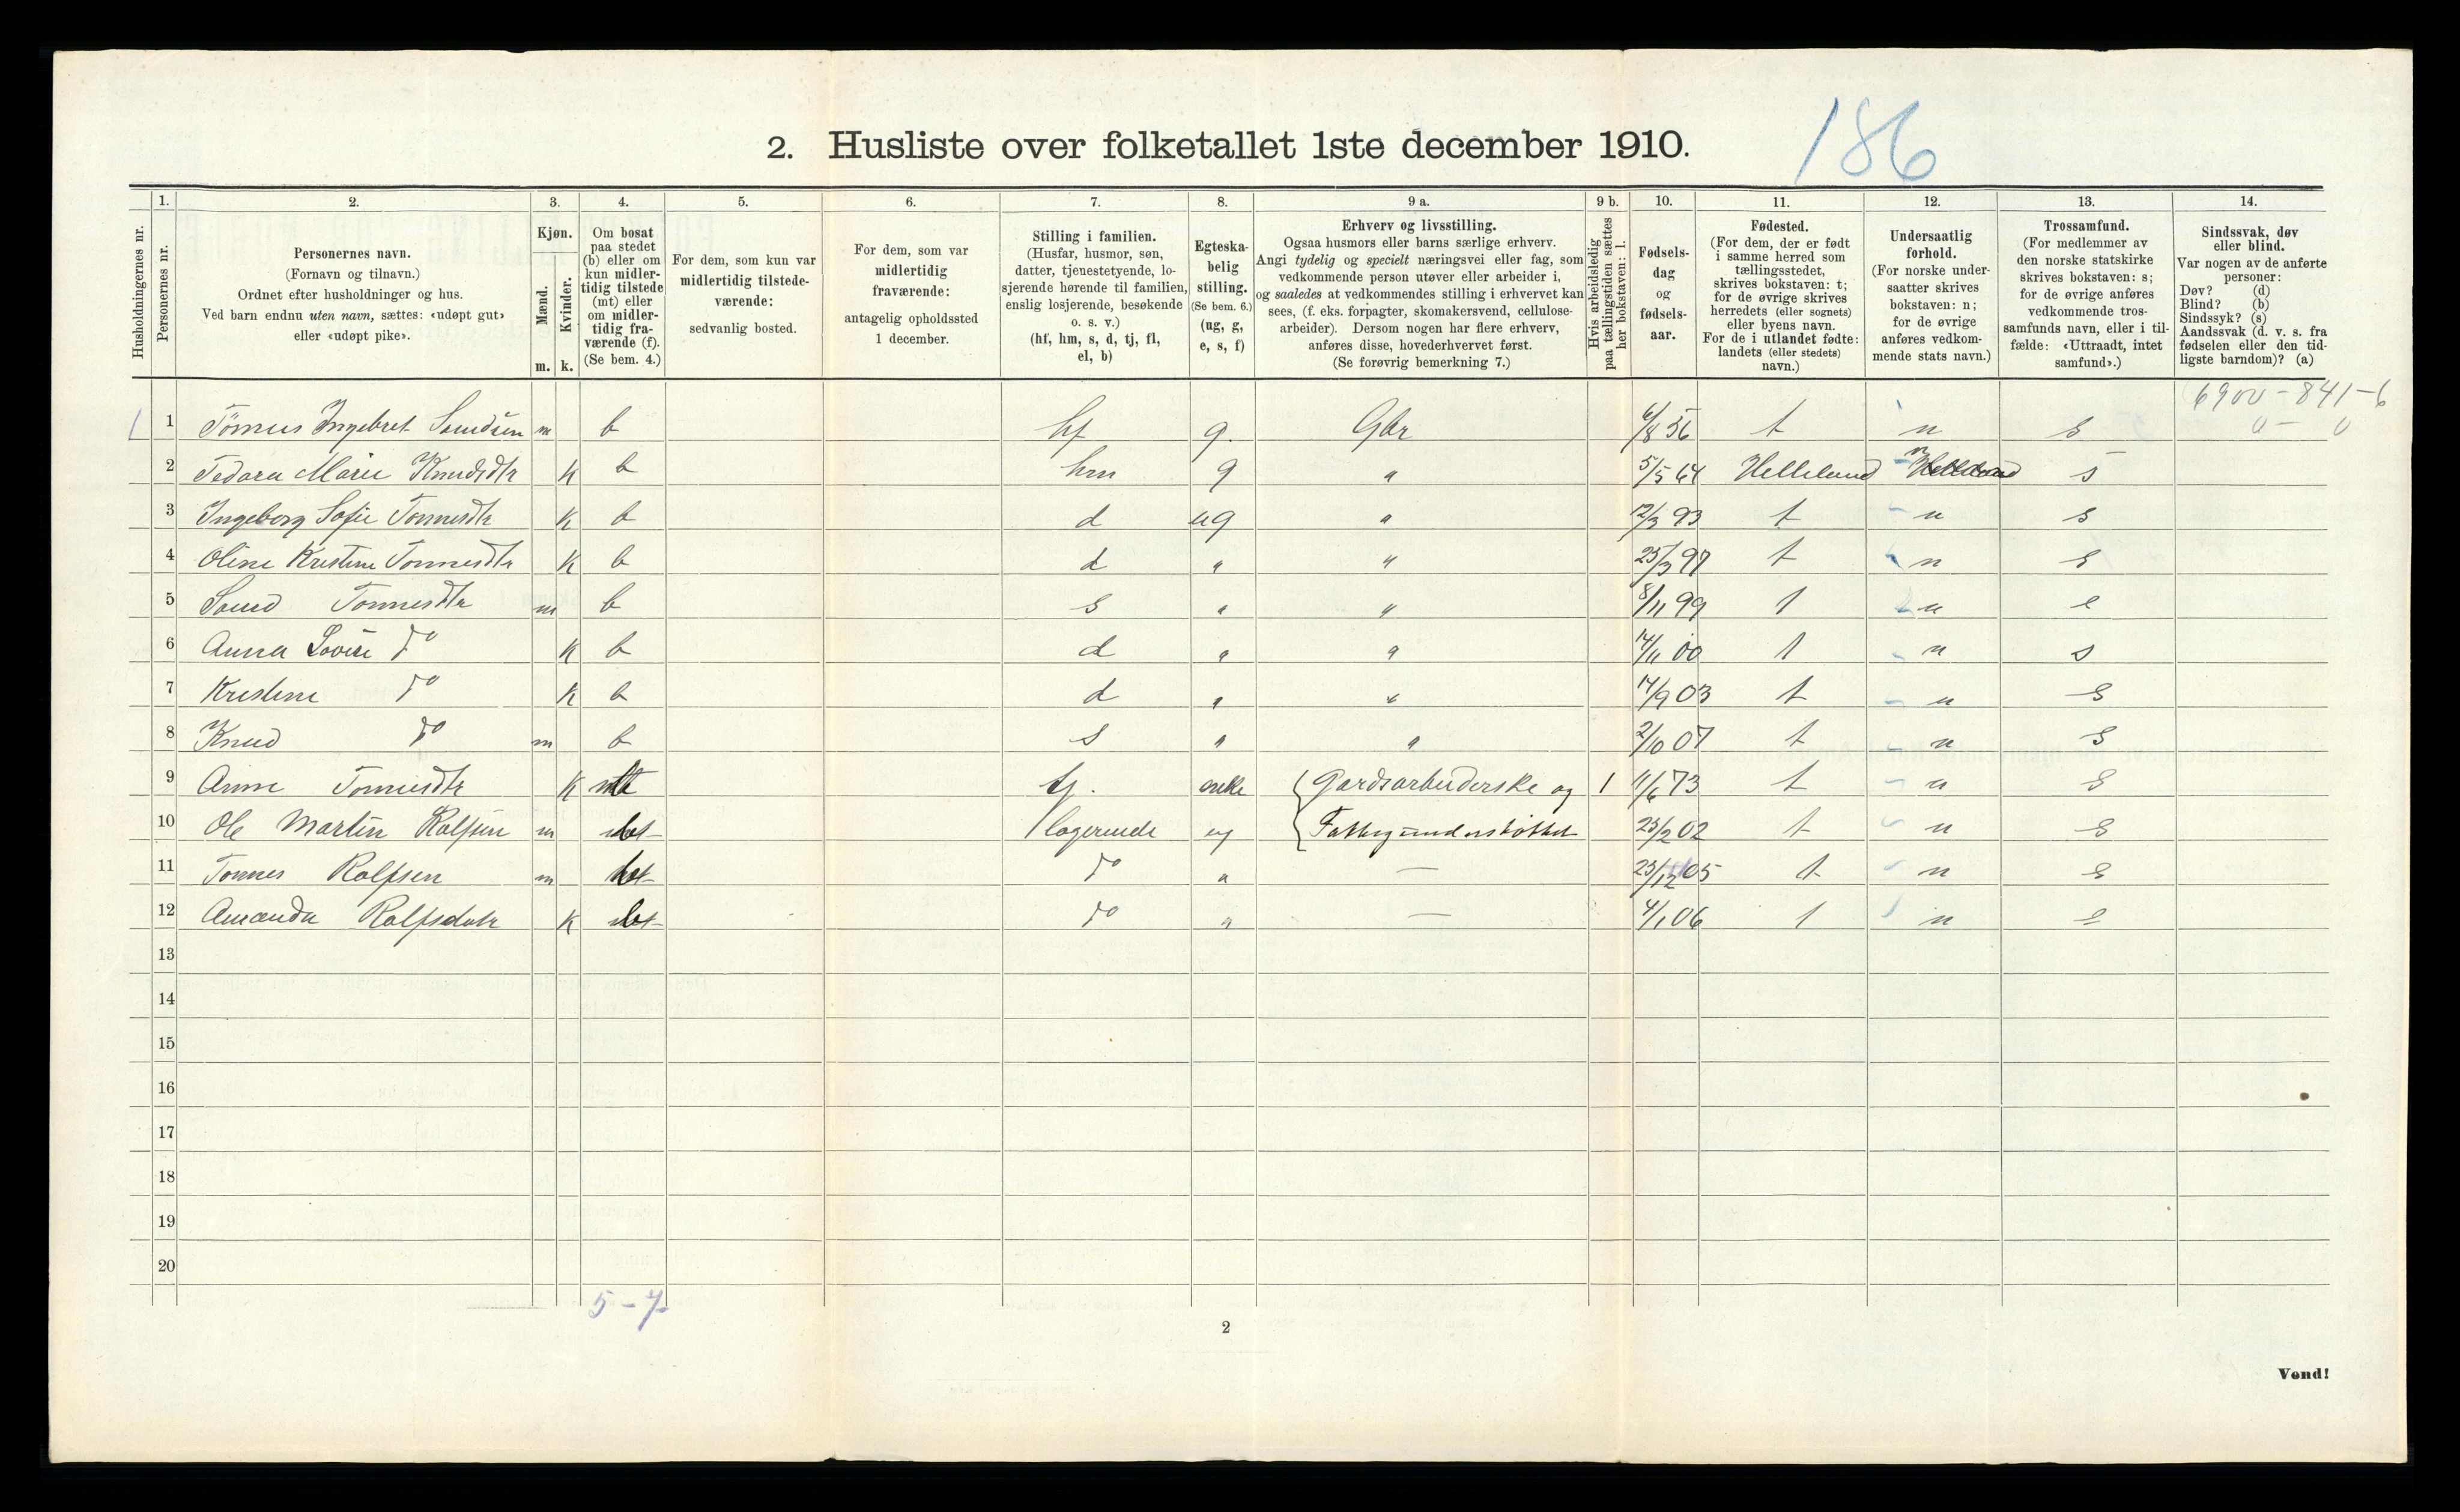 2. Husliste over folketallet 1ste december 1910. 186
Husholdningernes nr.
1. Personernes nr.
2. Personernes navn.
(Fornavn og tilnavn.)
Ordnet efter husholdninger og hus.
Ved barn endnu uten navn, sættes: «udøpt gut»
eller «udøpt pike».
3. Kjøn.
Mænd. m.
Kvinder. k.
4. Om bosat
paa stedet
(b) eller om
kun midler-
tidig tilstede
(mt) eller
om midler-
tidig fra-
værende (f).
(Se bem. 4.)
5. For dem, som kun var
midlertidig tilstede-
værende:
sedvanlig bosted.
6. For dem, som var
midlertidig
fraværende:
antagelig opholdssted
1 december.
7. Stilling i familien.
(Husfar, husmor, søn,
datter, tjenestetyende, lo-
sjerende hørende til familien,
enslig losjerende, besøkende
o. s. v.)
(hf, hm, s, d, tj, fl,
el, b)
8. Egteska-
belig
stilling.
(Se bem. 6.)
(ug, g,
e, s, f)
9 a. Erhverv og livsstilling.
Ogsaa husmors eller barns særlige erhverv.
Angi tydelig og specielt næringsvei eller fag, som
vedkommende person utøver eller arbeider i,
og saaledes at vedkommendes stilling i erhvervet kan
sees, (f. eks. forpagter, skomakersvend, cellulose-
arbeider). Dersom nogen har flere erhverv,
anføres disse, hovederhvervet først.
(Se forøvrig bemerkning 7.)
9 b. Hvis arbeidsledig
paa tællingstiden sættes
her bokstaven: l.
10. Fødsels-
dag
og
fødsels-
aar.
11. Fødested.
(For dem, der er født
i samme herred som
tællingsstedet,
skrives bokstaven: t;
for de øvrige skrives
herredets (eller sognets)
eller byens navn.
For de i utlandet fødte:
landets (eller stedets)
navn.)
12. Undersaatlig
forhold.
(For norske under-
saatter skrives
bokstaven: n;
for de øvrige
anføres vedkom-
mende stats navn.)
13. Trossamfund.
(For medlemmer av
den norske statskirke
skrives bokstaven: s;
for de øvrige anføres
vedkommende tros-
samfunds navn, eller i til-
fælde: «Uttraadt, intet
samfund».)
14. Sindssvak, døv
eller blind.
Var nogen av de anførte
personer:
Døv? (d)
Blind? (b)
Sindssyk? (s)
Aandssvak (d. v. s. fra
fødselen eller den tid-
ligste barndom)? (a)
6900 - 841 - 6
0 - 0
1 1 Tönnes Ingebret m b hf g. Gbr 6/8 56 t n s
2 Tedara Marie Knudsdtr K b hm g " 5/5 64 Helleland n s
3 Ingeborg Sofie Tonnesdtr K b d ug " 12/3 93 t n s
4 Oline Kristine Tonnesdtr K b d " " 25/3 97 t n s
5 Tonnesdtr m b s " " 8/11 99 t n s
6 Anna Lovise do K b d " " 14/11 00 t n s
7 Kristine do K b d " " 14/9 03 t n s
8 Knud do m b s " " 2/10 07 t n s
9 Anne Tonnesdtr K tj. enke Gardsarbeiderske og l 11/6 73 t n s
10 Ole Martin Rolfsen m logerende ug Fattigunderstöttet 23/2 02 t n s
11 Tonnes Rolfsen m do " — 23/12 05 t n s
12 Amanda Rolfsdatr K do " — 4/1 06 t n s
13
14
15
16
17
18
19
20
5 - 7
2
Vend!